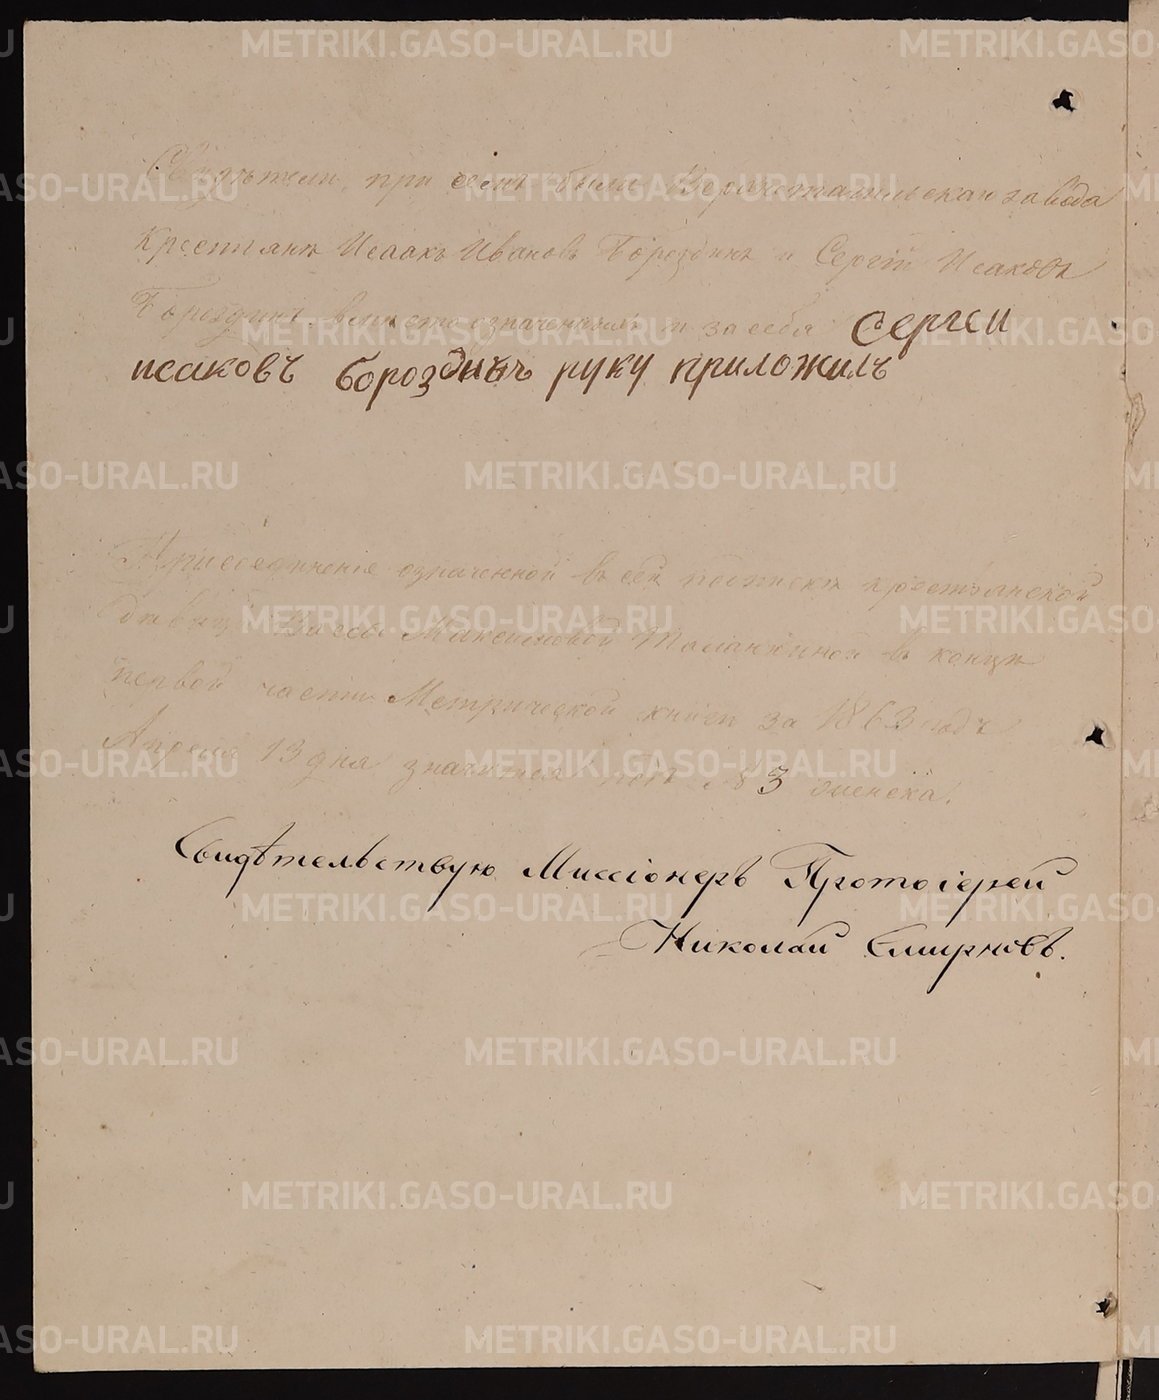 Свидѣтели при семъ были Верхнетагильскаго завода
Крестьяне Исаакъ Ивановъ Бороздинъ и Сергій Исаковъ
Бороздинъ. вмѣсто означенныхъ и за себя Сергеи
исаковъ бороздинъ руку приложилъ
Присоединеніе означенной въ сей подпискѣ крестьянской
дѣвицы Максимовой въ концѣ
первой части Метрической книги за 1863 годъ
Апрѣля 13 дня значится подъ № 3 женска.
Свидѣтельствую Миссіонеръ Протоіерей
Николай Смирновъ.
METRIKI.GASO-URAL.RU